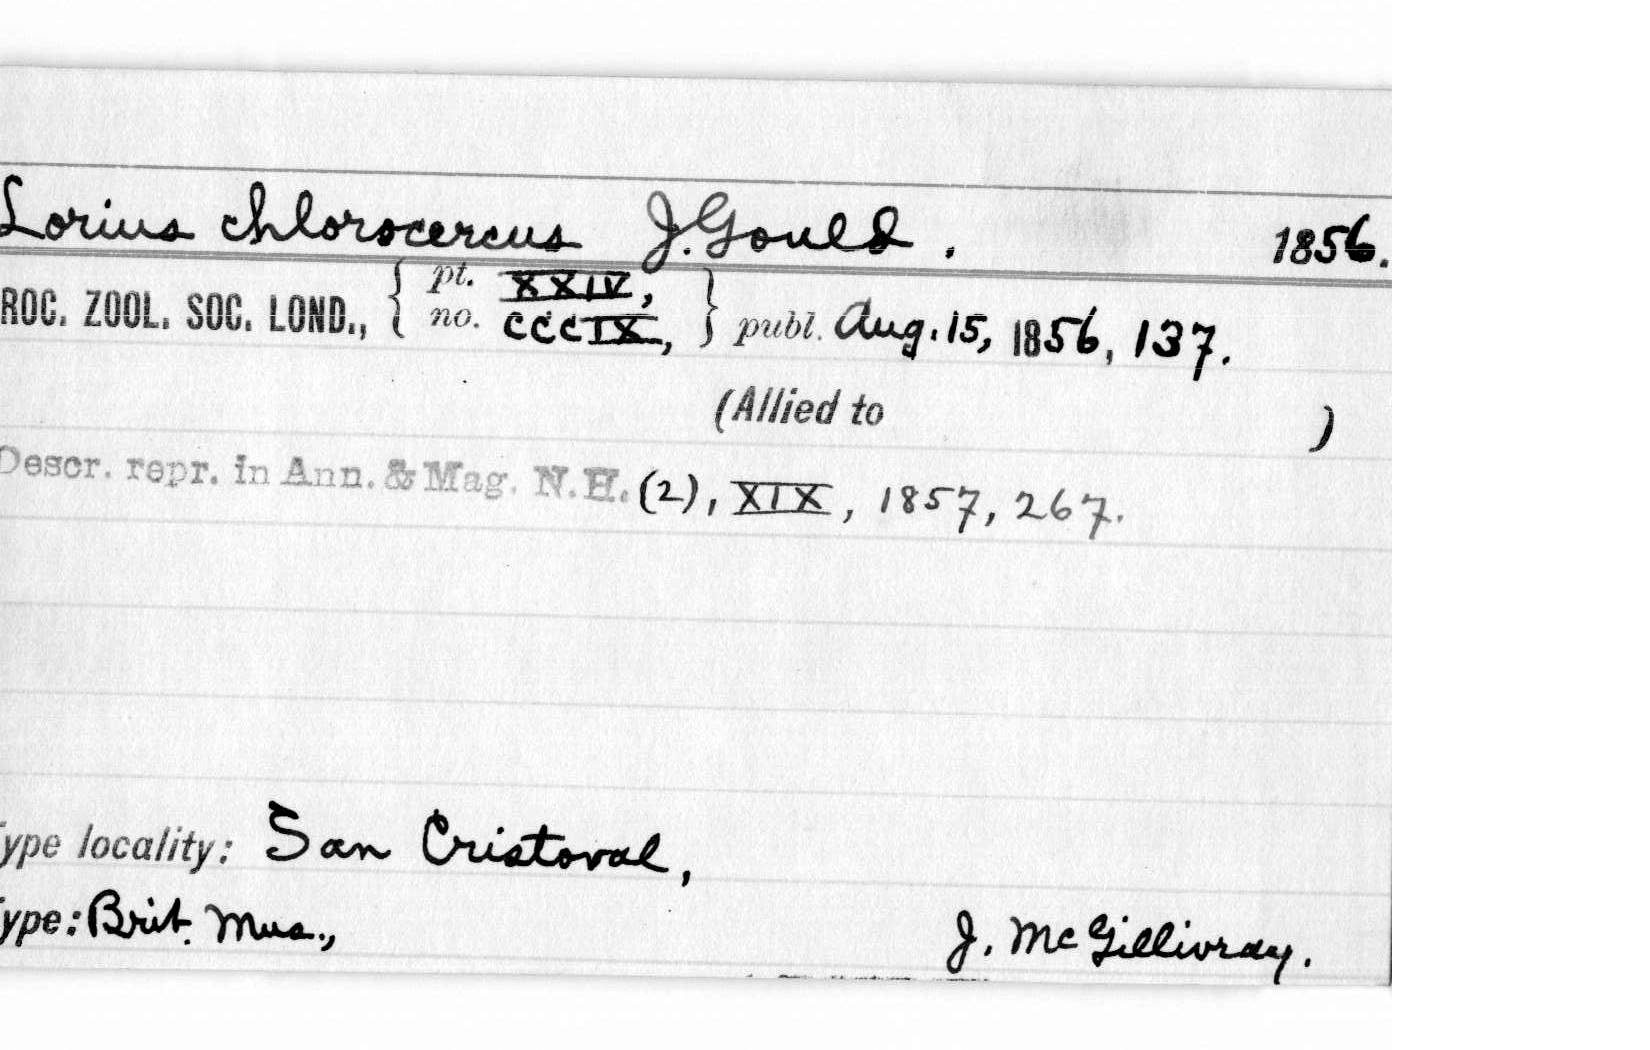 Lorius chlorocercus J. Gould. 1856.
ROC. ZOOL. SOC. LOND., { pt. XXIV, no. CCCIX, } publ. Aug. 15, 1856, 137.
(Allied to )
Descr. repr. in Ann. & Mag. N.H. (2), XIX, 1857, 267.
ype locality: San Cristoval,
ype: Brit. Mus., J. McGillivray.